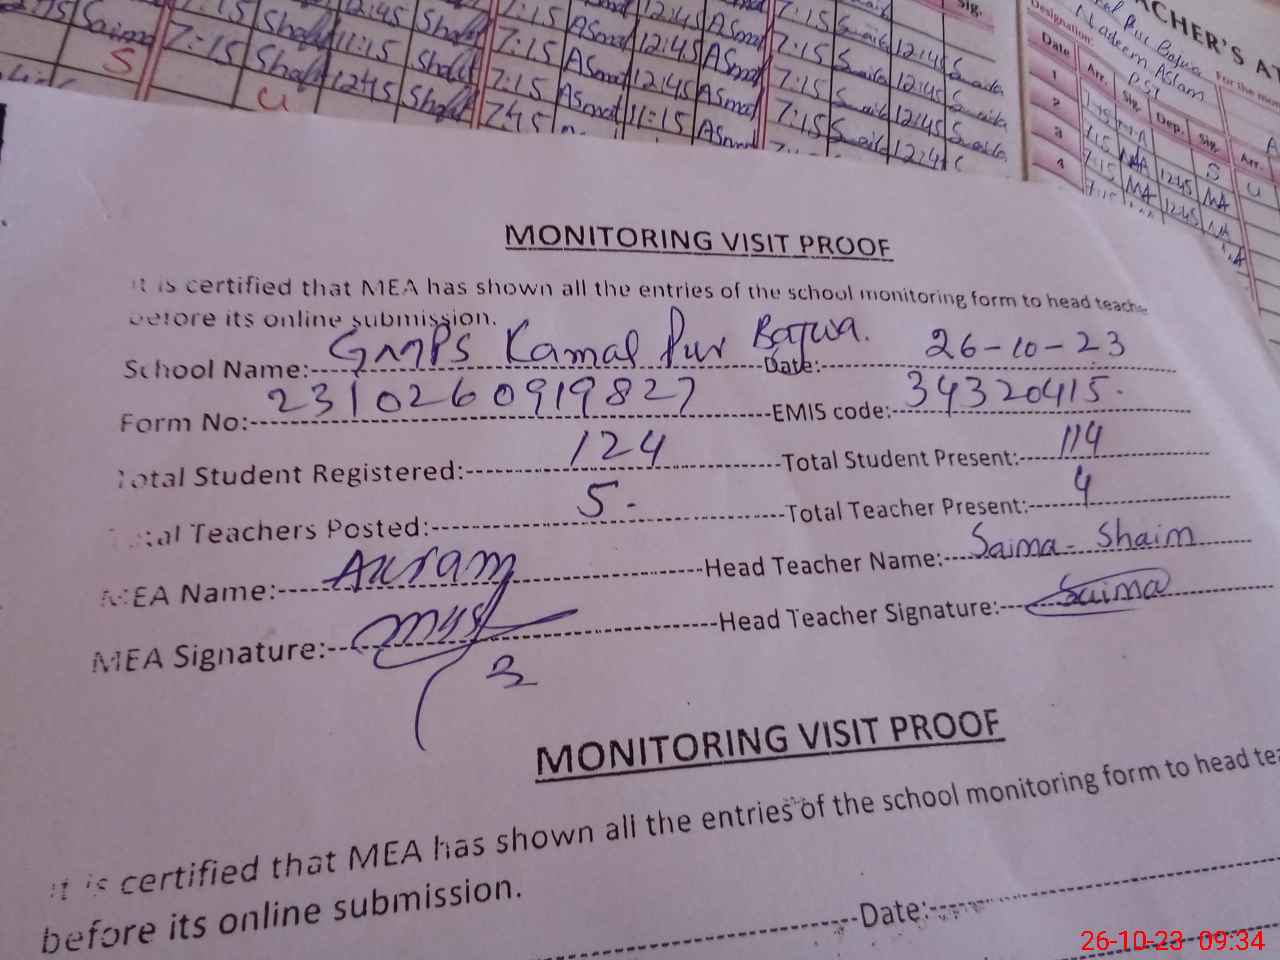 Saima 7:15 Shaf 12:45 Shaf 7:15 ASmat 12:45 ASmat 7:15 12:45
S 7:15 Shaf 11:15 Shaf 7:15 ASmat 12:45 ASmat 7:15 12:45
U 12:45 Shaf 7:15 ASmat 12:45 ASmat 7:15 12:45
7:45 11:15 ASmat 7:15 12:45
Sig.
CHER'S AT
Pur Bajwa
Nadeem ASlam
Designation: PST For the mon
Date Arr. Sig. Dep. Sig. Arr.
1 S U
2 7:15 NA 12:45 NA
3 7:15 NA 12:45 NA
4 7:15
MONITORING VISIT PROOF
It is certified that MEA has shown all the entries of the school monitoring form to head teache
before its online submission.
School Name: GMPS Kamal Pur Bajwa. Date: 26-10-23
Form No: 2310260919827 EMIS code: 34320415.
Total Student Registered: 124 Total Student Present: 114
Total Teachers Posted: 5. Total Teacher Present: 4
MEA Name: Akram Head Teacher Name: Saima - Shaim
MEA Signature: Head Teacher Signature: Saima
MONITORING VISIT PROOF
It is certified that MEA has shown all the entries of the school monitoring form to head tea
before its online submission.
Date:
26-10-23 09:34